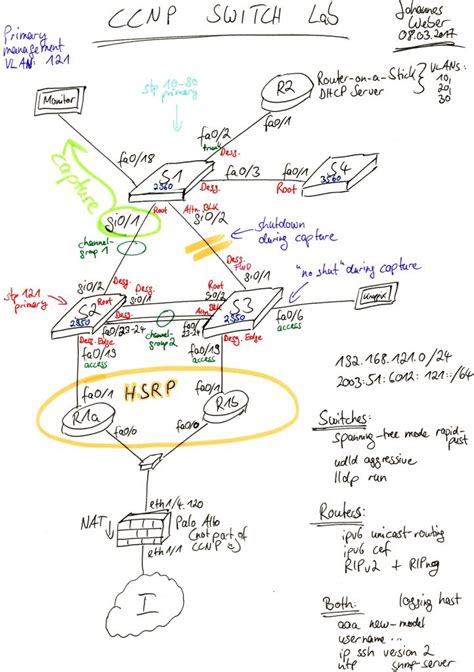 CCNP SWITCH Lab
Johannes
Weber
08.03.2017
Primary
management
VLAN: 121
Monitor
stp 10-30
primary
R2
Router-on-a-Stick
DHCP Server
VLANs:
10,
20,
30
fa0/1
fa0/2
trunk
Desg.
fa0/18
S1
2960
fa0/3
fa0/1
S4
3560
Desg.
Root
capture
gi0/1
Root
Altn. BLK
channel-
group 1
shutdown
during capture
gi0/2
Desg.
FWD
gi0/1
"no shut" during capture
stp 121
primary
Desg.
Root
gi0/1
S2
2950
Desg.
Root
S3
Altn.
BLK
fa0/23-24
channel-
group 2
fa0/6
access
Desg. Edge
fa0/19
access
fa0/19
access
Desg. Edge
HSRP
fa0/1
fa0/1
R1a
R1b
fa0/0
fa0/0
192.168.121.0/24
2003:51:6012:121::/64
Switches:
spanning-tree mode rapid-
pvst
udld aggressive
lldp run
eth1/4.120
NAT
Palo Alto
(not part of
CCNP
eth1/1
I
Routers:
ipv6 unicast-routing
ipv6 cef
RIPv2 + RIPng
Both:
logging host
aaa new-model
username ...
ip ssh version 2
ntp
snmp-server